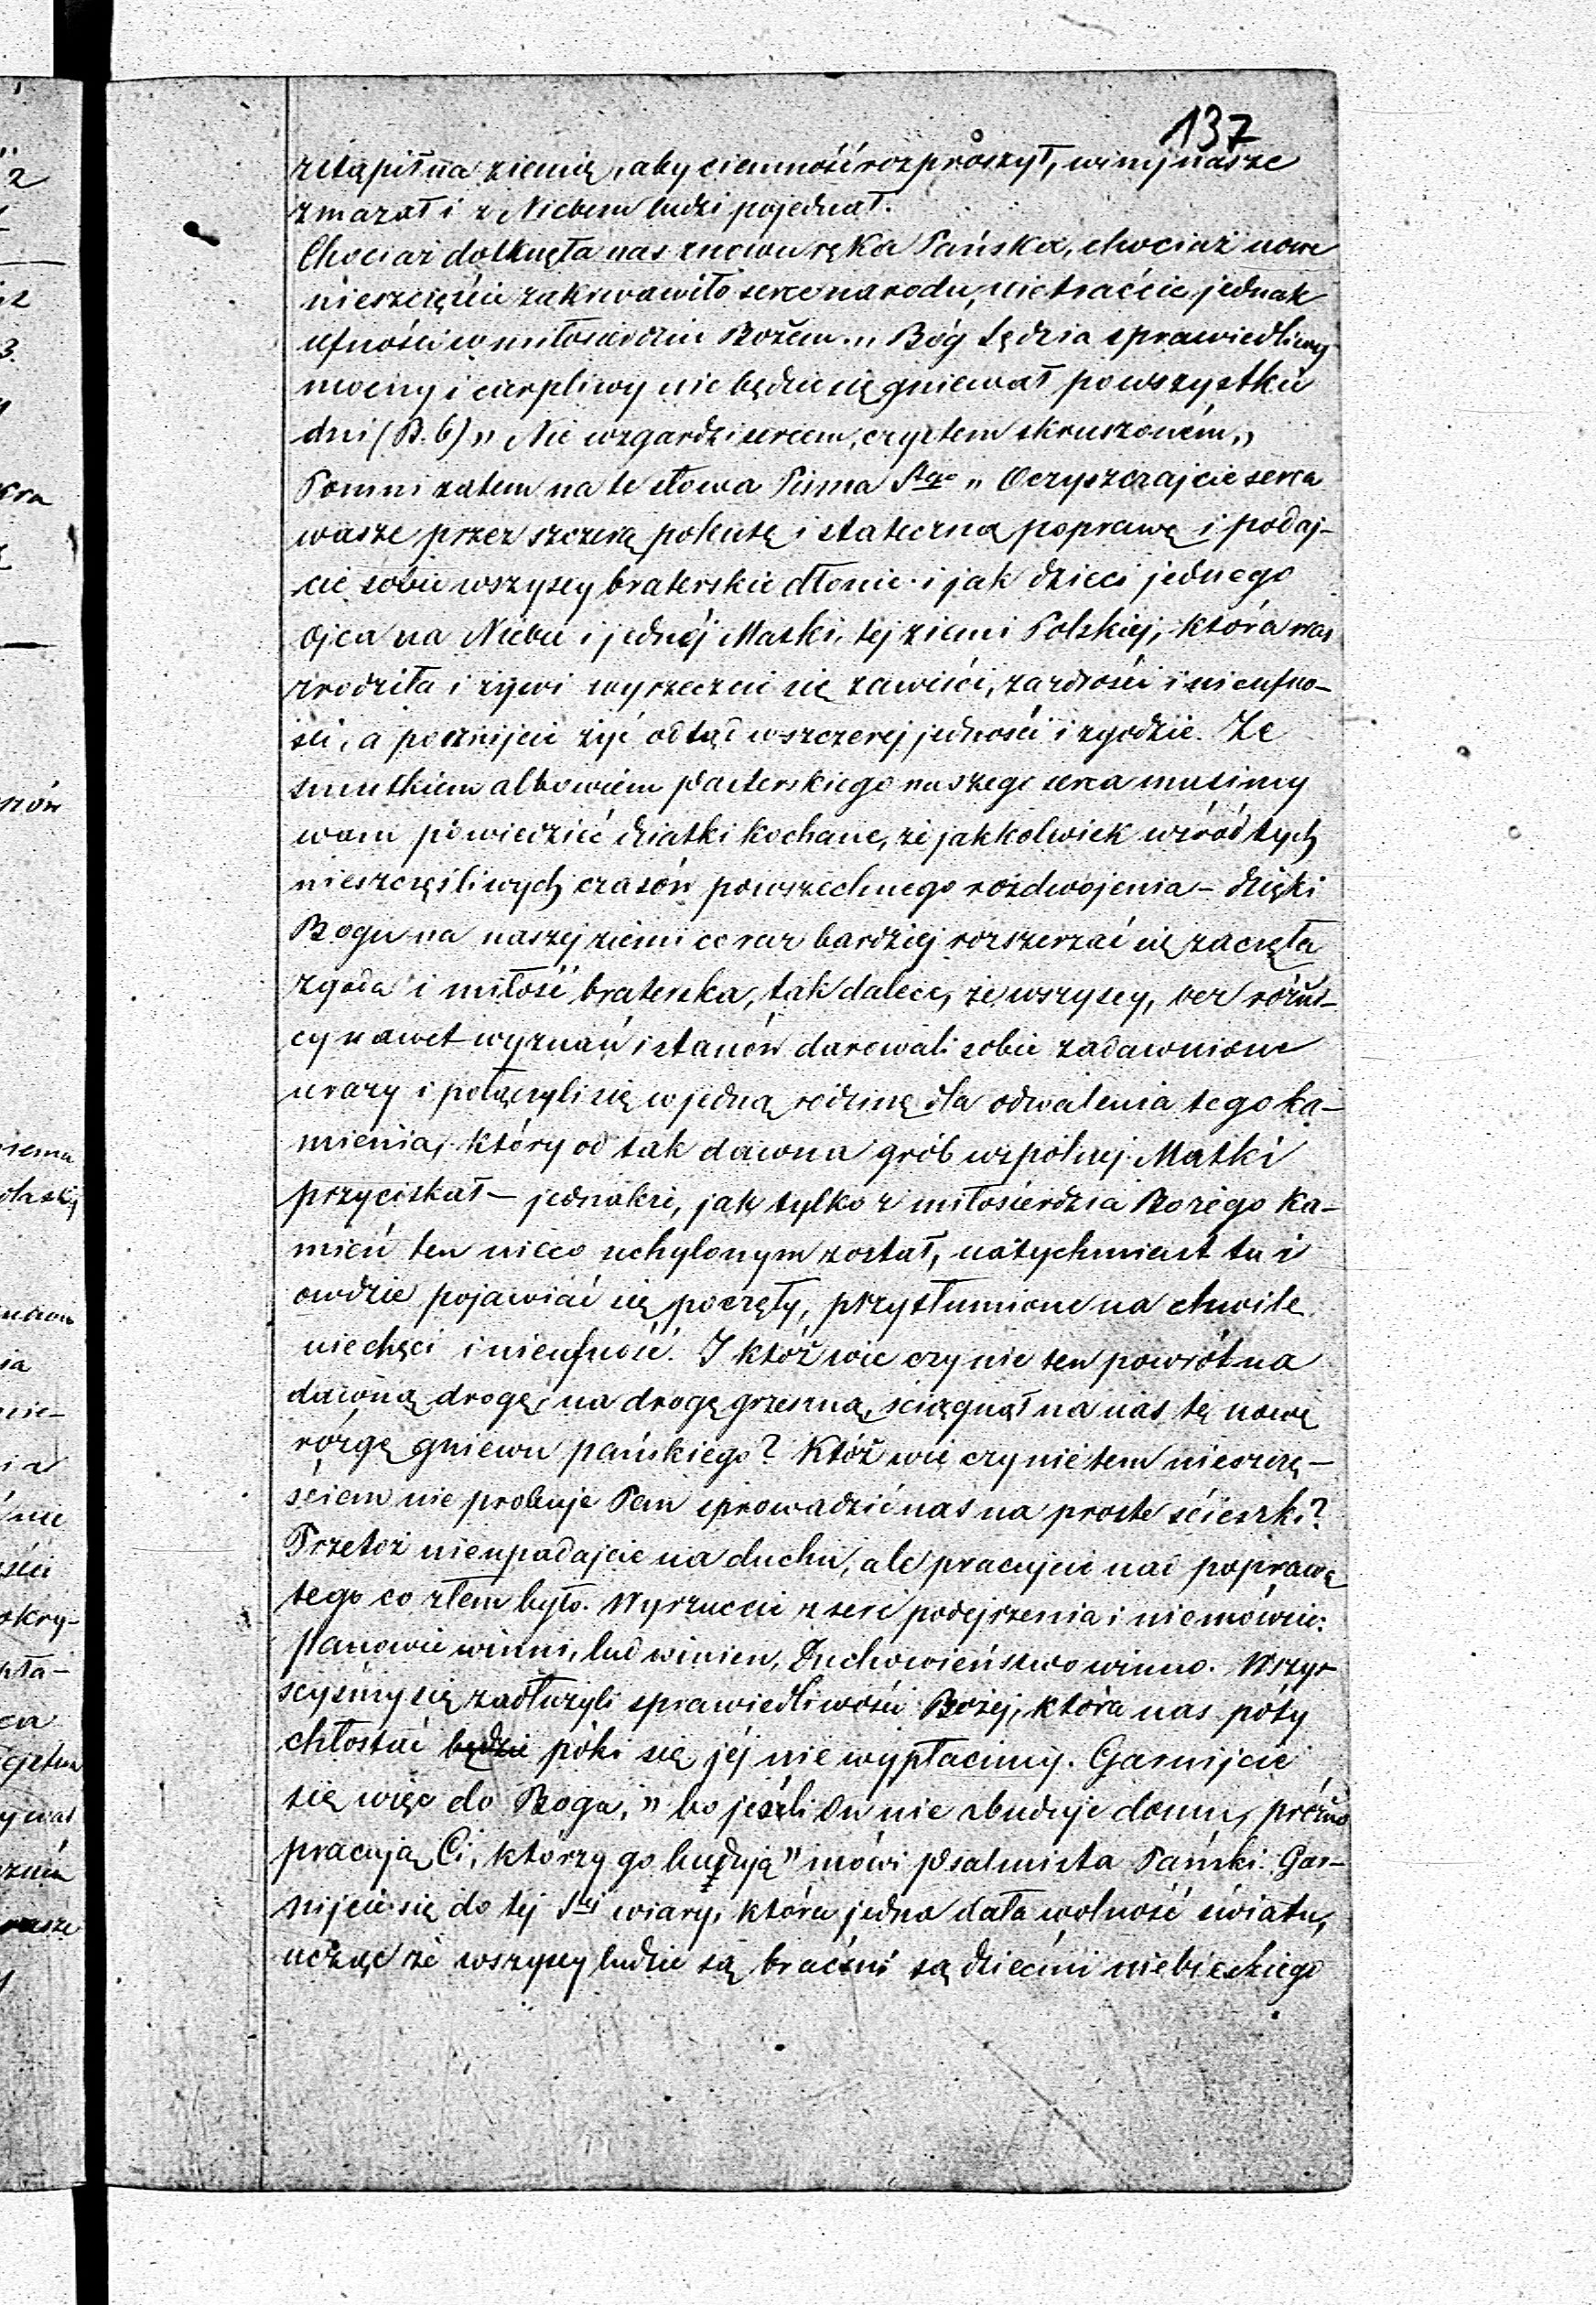 137
zstąpił na ziemię, aby ciemność rozproszył, winy nasze
zmazał i z Niebem ludzi pojednał.
Chociaż dotknęła nas znowu ręka Pańska, chociaż nowe
nieszczęście zakrwawiło serce narodu, nietraćcie jednak
ufności w miłosierdziu Bożem. „Bóg Sędzia sprawiedliwy
mocny i cierpliwy nie będzie się gniewał po wszystkie
dni (B. 6)" Nie wzgardzi sercem, czystem skruszoném„
Pomni zatem na te słowa Pisma Stgo „Oczyszczajcie serca
wasze przez szczerą pokutę i stateczną poprawę i podaj-
cie sobie wszyscy braterskie dłonie i jak dzieci jednego
Ojca na Niebie i jednéj Matki, tej ziemi Polskiej, która was
zrodziła i żywi wyrzeczcie się zawiści, zazdrości i nieufno-
ści, a pocznijcie żyć odtąd w szczerej jedności i zgodzie. Ze
smutkiem albowiem pasterskiego naszego serca musimy
wam powiedzieć dziatki kochane, że jakkolwiek wśród tych
nieszczęśliwych czasów powszechnego rozdwojenia – dzięki
Bogu na naszej ziemi co raz bardziej rozszerzać się zaczęła
zgoda i miłość braterska, tak dalece, że wszyscy, bez różni-
cy nawet wyznań i stanów darowali sobie zadawnione
urazy i połączyli się w jedną rodzinę dla odwalenia tego ka-
mienia, który od tak dawna grób wspólnej Matki
przyciskał – jednakże, jak tylko z miłosierdzia Bożego ka-
mień ten nieco uchylonym został, natychmiast tu i
owdzie pojawiać się poczęły, przytłumione na chwilę
niechęci i nieufność. I któż wie czy nie ten powrót na
dawną drogę, na drogę grzeszną, ściągnął na nas tę nową
rózgę gniewu pańskiego? Któż wie czy nie tem nieszczę-
ściem nie probuje Pan sprowadzić nas na proste ścieszki?
Przetoż nieupadajcie na duchu, ale pracujcie nad poprawą
tego co złem było. Wyrzućcie z serc podejrzenia i niemówcie:
panowie winni, lud winien, Duchowieństwo winno. Wszys-
scyśmy się zadłużyli sprawiedliwości Bożej, która nas póty
chłostać będzie póki się jéj nie wypłacimy. Garnijcie
się więc do Boga, „bo jeźli On nie zbuduje domu, próżno
pracują Ci, którzy go budują" mówi psalmista Pański. Gar-
nijcie się do tej Stéj wiary, która jedna dała wolność światu,
ucząc że wszyscy ludzie są braćmi są dziećmi niebieskiego